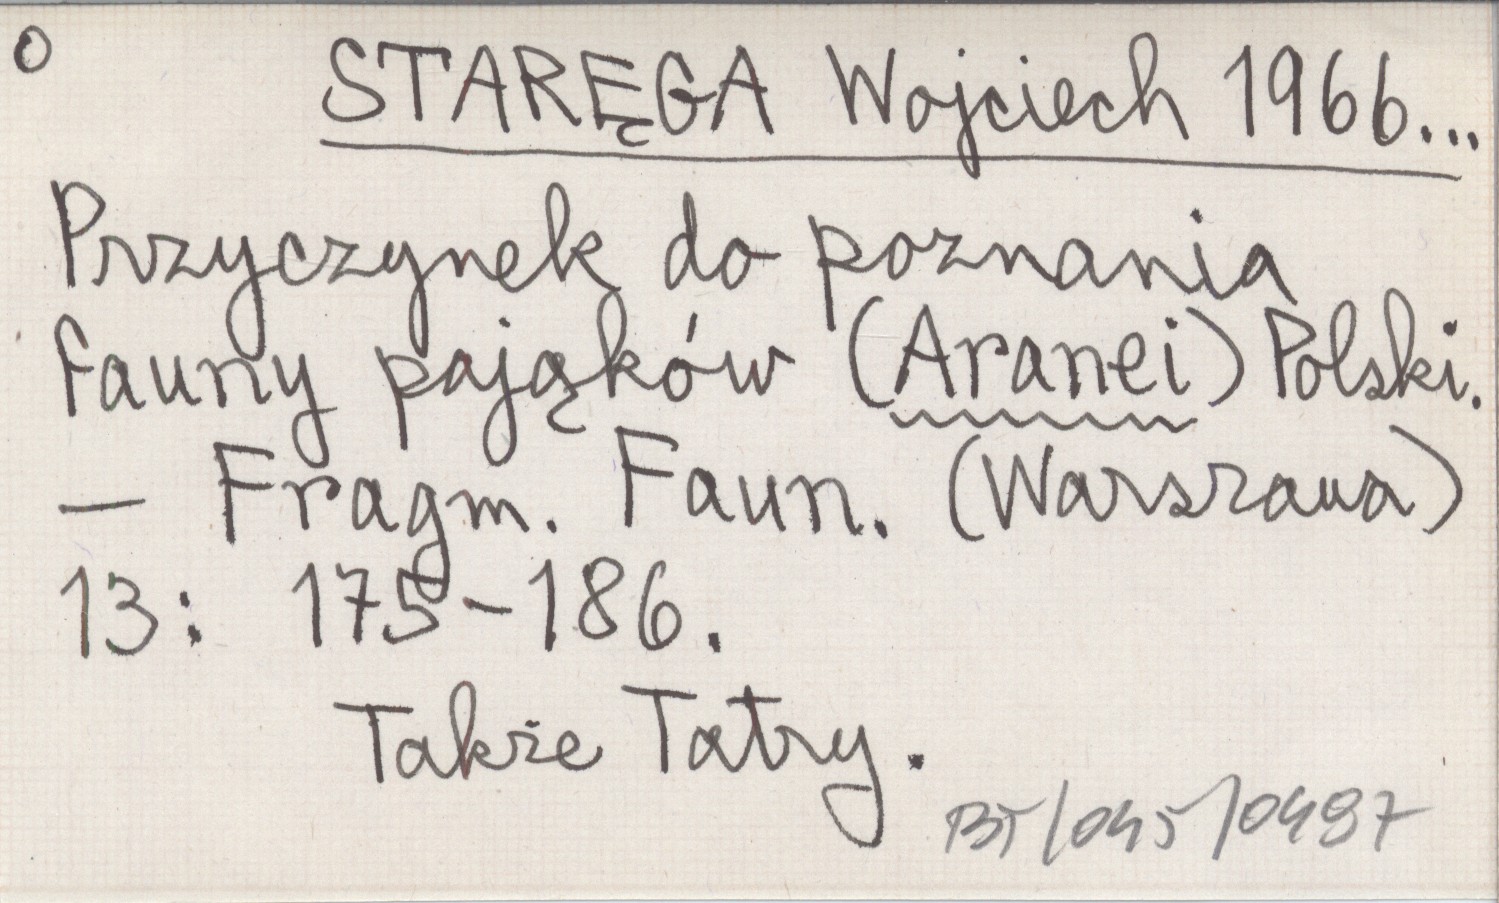 O STARĘGA Wojciech 1966...
Przyczynek do poznania
fauny pająków (Aranei) Polski.
— Fragm. Faun. (Warszawa)
13: 175-186.
Także Tatry.
BT/045/0487